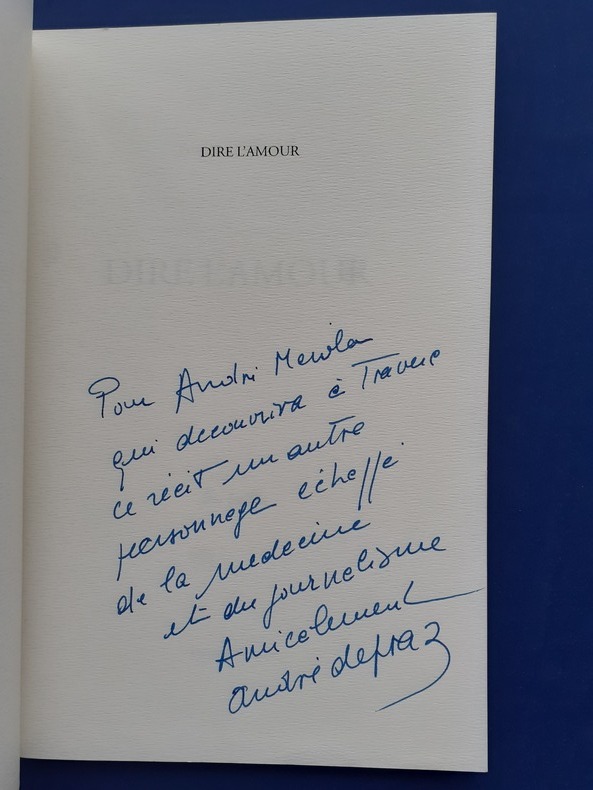 DIRE L'AMOUR
DIRE L'AMOUR
Pour André Merola
qui decouvrira à Travers
ce récit un autre
personnage échappé
de la medecine
et du journalisme
Amicalement
andré depraz